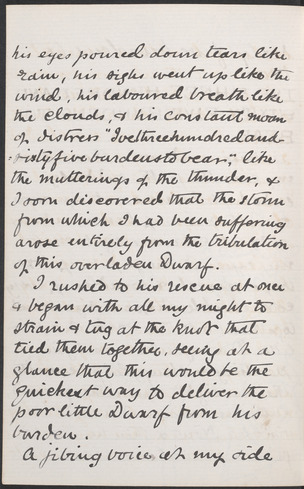 his eyes poured down tears like
rain, his sighs went up like the
wind, his laboured breath like
the clouds, & his constant moan
of distress "Ivethreehundredand
sixtyfiveburdenstobear," like
the mutterings of the thunder, &
I soon discovered that the storm
from which I had been suffering
arose entirely from the tribulation
of this overladen Dwarf.
I rushed to his rescue at once
& began with all my might to
strain & tug at the knot that
tied them together, seeing at a
glance that this would be the
quickest way to deliver the
poor little Dwarf from his
burden.
A jibing voice at my side